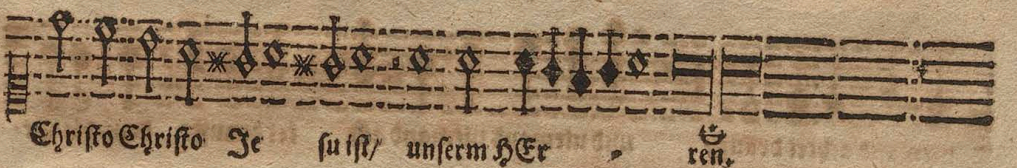 Christo Christo Je su ist/ unserm HEr - ren.